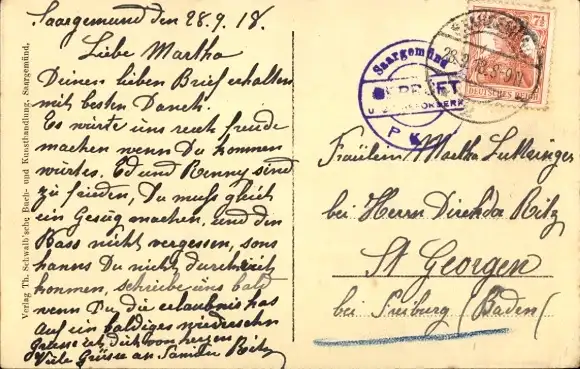 Saargemund den 28.9.18.
Liebe Martha
Deinen lieben Brief erhalten
mit besten Dank.
Es würte uns recht freude
machen wenn Du kommen
würtes. Ed und Renny sind
zu frieden, Du muss gleich
ein Gesüg machen, und den
Pass nicht vergessen, sons
kanns Du nicht durch
kommen, schreibe uns bald
wenn Du die erlaubnis has
Auf ein baldiges wiedersehn
Grüsse ich dich von herzen
Viele Grüsse an Familie Ritz
Verlag Th. Schwalb'sche Buch- und Kunsthandlung, Saargemünd.
Saargemünd
GEPRÜFT
P.K.
SAARGEMÜND
28.9.18.8-9V.
7½
DEUTSCHES REICH
Fräulein Martha
bei Herrn Direktor Ritz
St Georgen
bei Freiburg (Baden)